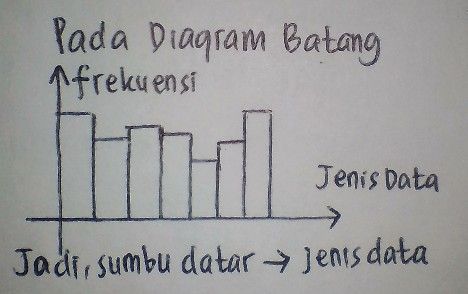 Pada Diagram Batang
frekuensi
Jenis Data
Jadi, sumbu datar → jenis data